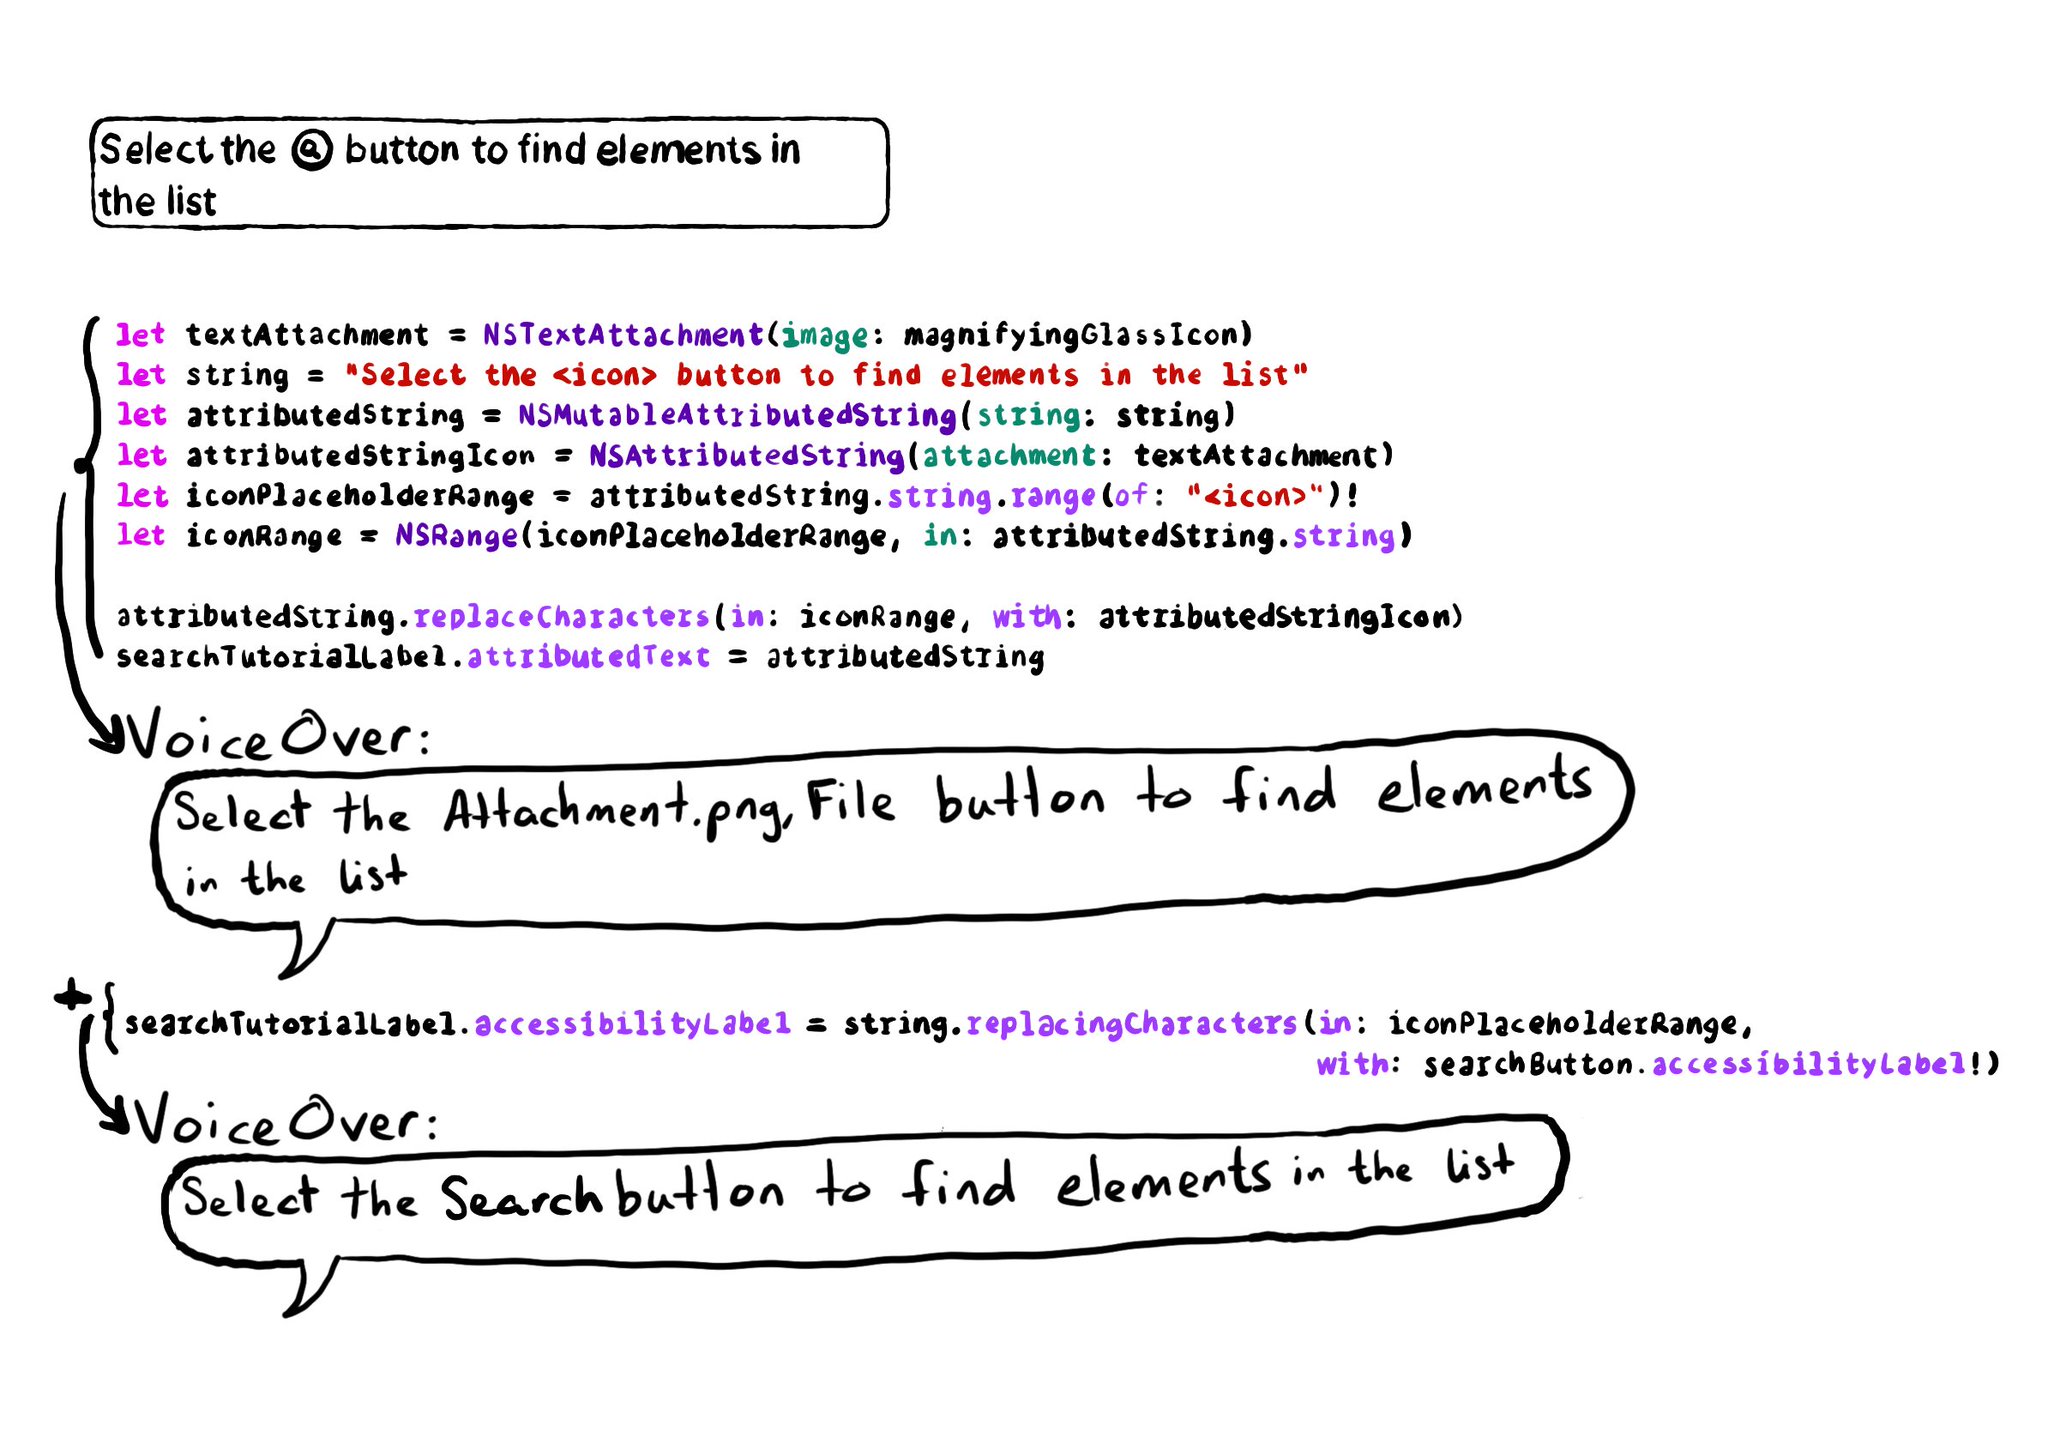 Select the button to find elements in
the list
let textAttachment = NSTextAttachment(image: magnifyingGlassIcon)
let string = "Select the <icon> button to find elements in the list"
let attributedString = NSMutableAttributedString(string: string)
let attributedStringIcon = NSAttributedString(attachment: textAttachment)
let iconPlaceholderRange = attributedString.string.range(of: "<icon>")!
let iconRange = NSRange(iconPlaceholderRange, in: attributedString.string)
attributedString.replaceCharacters(in: iconRange, with: attributedStringIcon)
searchTutorialLabel.attributedText = attributedString
VoiceOver:
Select the Attachment.png, File button to find elements
in the list
+
searchTutorialLabel.accessibilityLabel = string.replacingCharacters(in: iconPlaceholderRange,
with: searchButton.accessibilityLabel!)
VoiceOver:
Select the Search button to find elements in the list